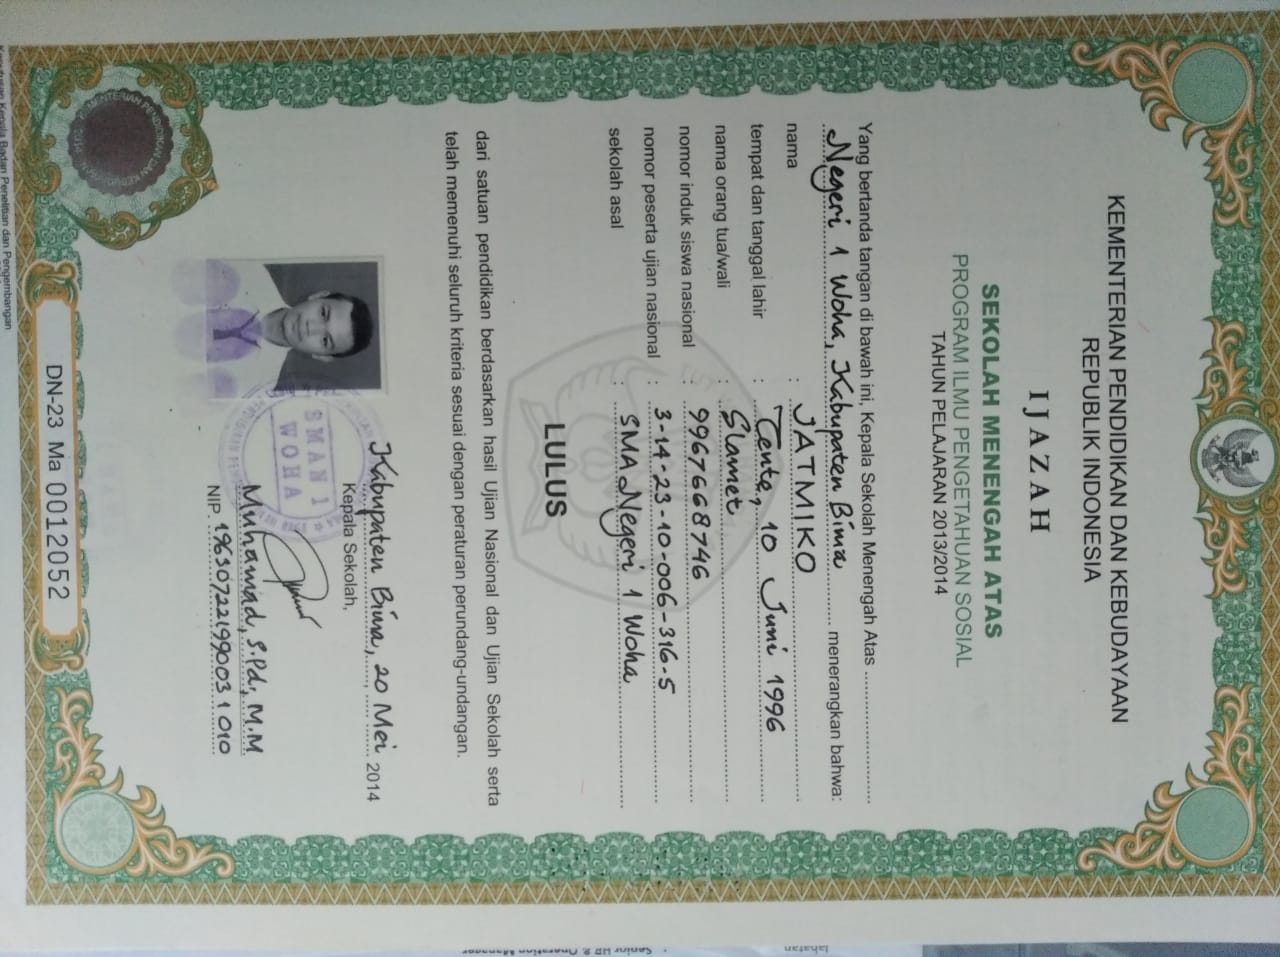 KEMENTERIAN PENDIDIKAN DAN KEBUDAYAAN
REPUBLIK INDONESIA
IJAZAH
SEKOLAH MENENGAH ATAS
PROGRAM ILMU PENGETAHUAN SOSIAL
TAHUN PELAJARAN 2013/2014
Yang bertanda tangan di bawah ini, Kepala Sekolah Menengah Atas
Negeri 1 Woha, Kabupaten Bima menerangkan bahwa:
nama : JATMIKO
tempat dan tanggal lahir : Tente, 10 Juni 1996
nama orang tua/wali : Slamet
nomor induk siswa nasional : 9967668746
nomor peserta ujian nasional : 3-14-23-10-006-316-5
sekolah asal : SMA Negeri 1 Woha
LULUS
dari satuan pendidikan berdasarkan hasil Ujian Nasional dan Ujian Sekolah serta
telah memenuhi seluruh kriteria sesuai dengan peraturan perundang-undangan.
Kabupaten Bima, 20 Mei 2014
Kepala Sekolah,
SMAN 1
WOHA
Muhamad, S.Pd, M.M
NIP. 196307221990031010
DN-23 Ma 0012052
Kepala Badan Penelitian dan Pengembangan
Jabatan : Senior HR & Operation Manager